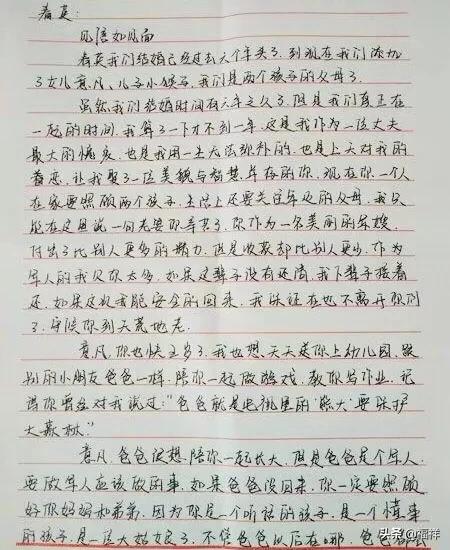 见信如见面
我们结婚已经过去六个年头了,到现在我们添加
了女儿意凡、儿子小猴子,我们是两个孩子的父母了.
虽然我们结婚时间有六年之久了,但是我们真正在
一起的时间,我算了一下才不到一年,这是我作为一位丈夫
最大的愧疚,也是我用一生无法弥补的,也是上天对我的
眷恋,让我娶了一位美貌与智慧并存的你,现在你一个人
在家要照顾两个孩子,生活上还要关注年迈的父母,我只
能在这里说一句老婆你辛苦了.你作为一名美丽的军嫂,
付出了比别人更多的精力,但是收获却比别人更少,作为
军人的我欠你太多,如果这辈子没有还清,我下辈子接着
还,如果这次我能安全的回来,我保证在也不离开你们
了,守候你到天荒地老.
意凡,你也快五岁了,我也想天天送你上幼儿园,跟
别的小朋友爸爸一样,陪你一起做游戏,教你写作业,记
得你曾经对我说过:"爸爸就是电视里的"熊大"要保护
大森林."
意凡,爸爸没想陪你一起长大,但是爸爸是个军人,
要做军人应该做的事,如果爸爸没回来,你一定要照顾
好你妈妈和弟弟,因为你是一个听话的孩子,是一个懂事
的孩子,是一位大姑娘了,不管爸爸以后在哪,爸爸都会
头条 @福祥